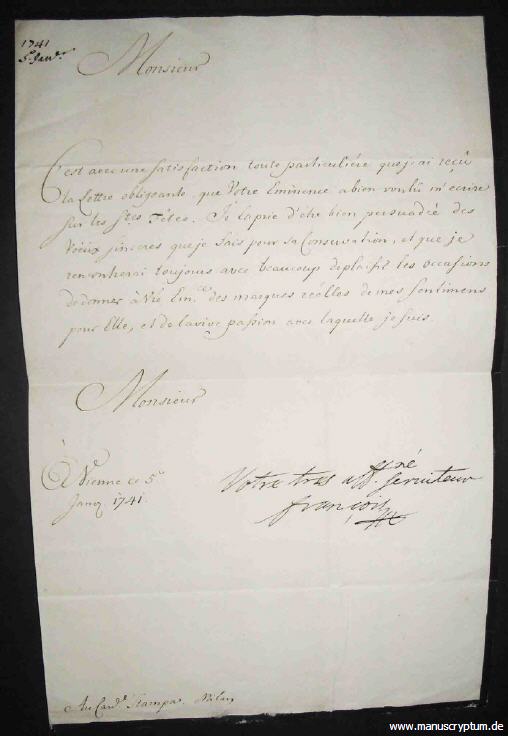 1741
5. Janv.r
Monsieur
C'est avec une satisfaction toute particuliére que j'ai reçû
la lettre obligeante que Votre Eminence a bien voulû m'ecrire
sur les S.tes Fêtes. Je la prie d'être bien persuadée des
Voeux sinceres que je fais pour sa Conservation, et que je
rencontrerai toujours avec beaucoup de plaisir les occasions
de donner à V're Em.ce des marques réelles de mes sentimens
pour Elle, et de la vive passion avec laquelle je suis
Monsieur
à Vienne ce 5.e
Janv. 1741.
Votre tres aff.né serviteur
françois
Au Card.l Stampa. Milan
www.manuscryptum.de